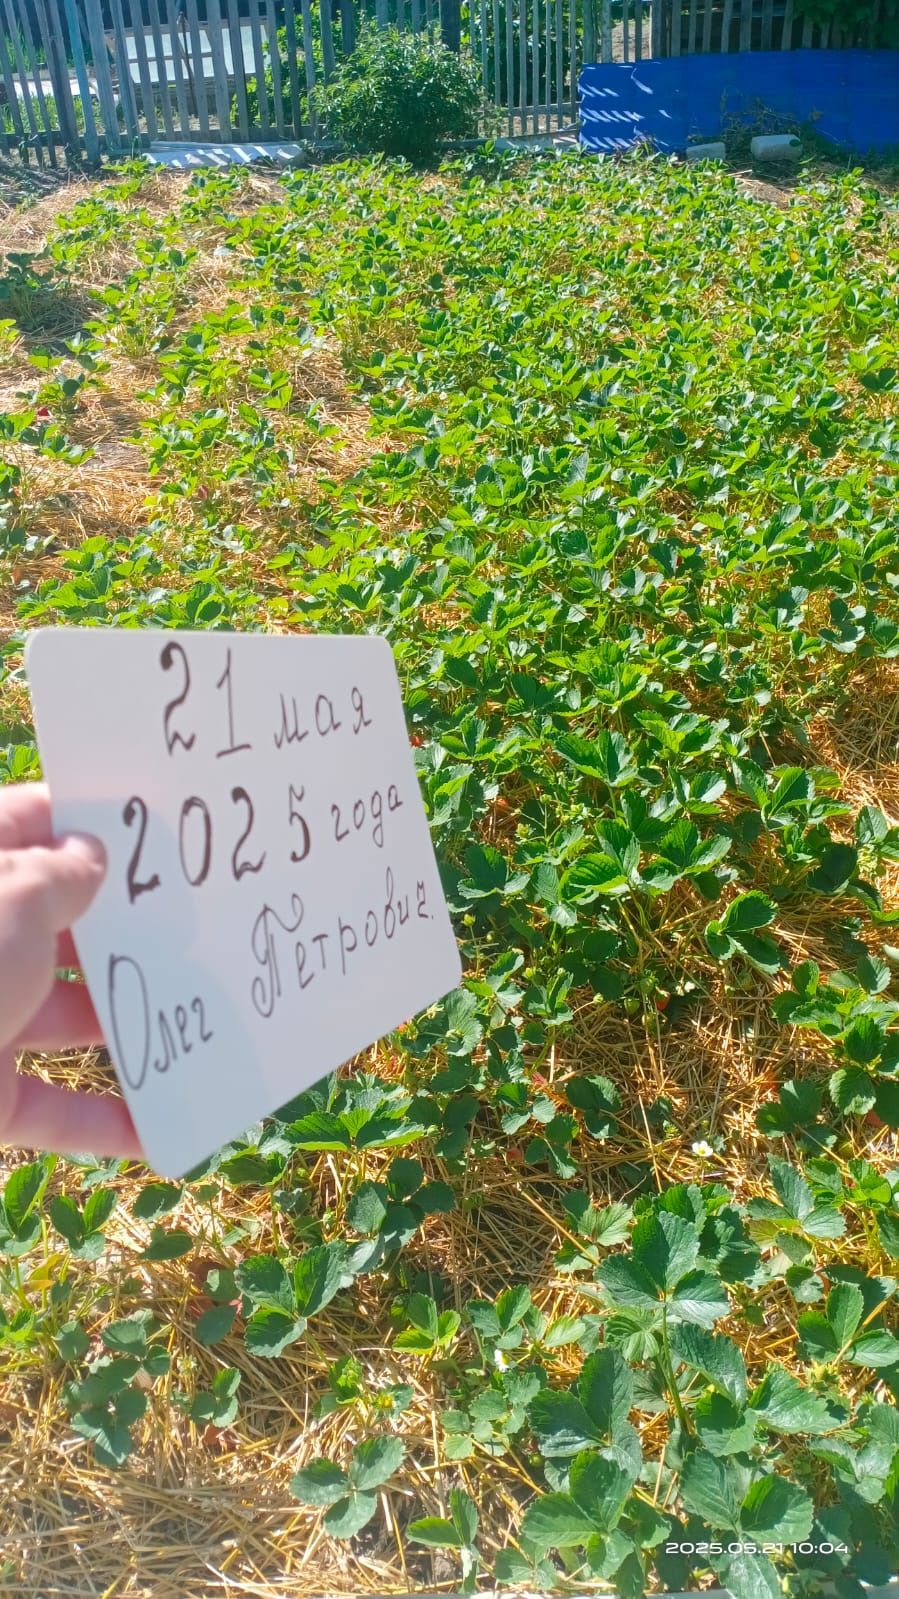 21 мая
2025 года
Олег Петрович.
2025.05.21 10:04